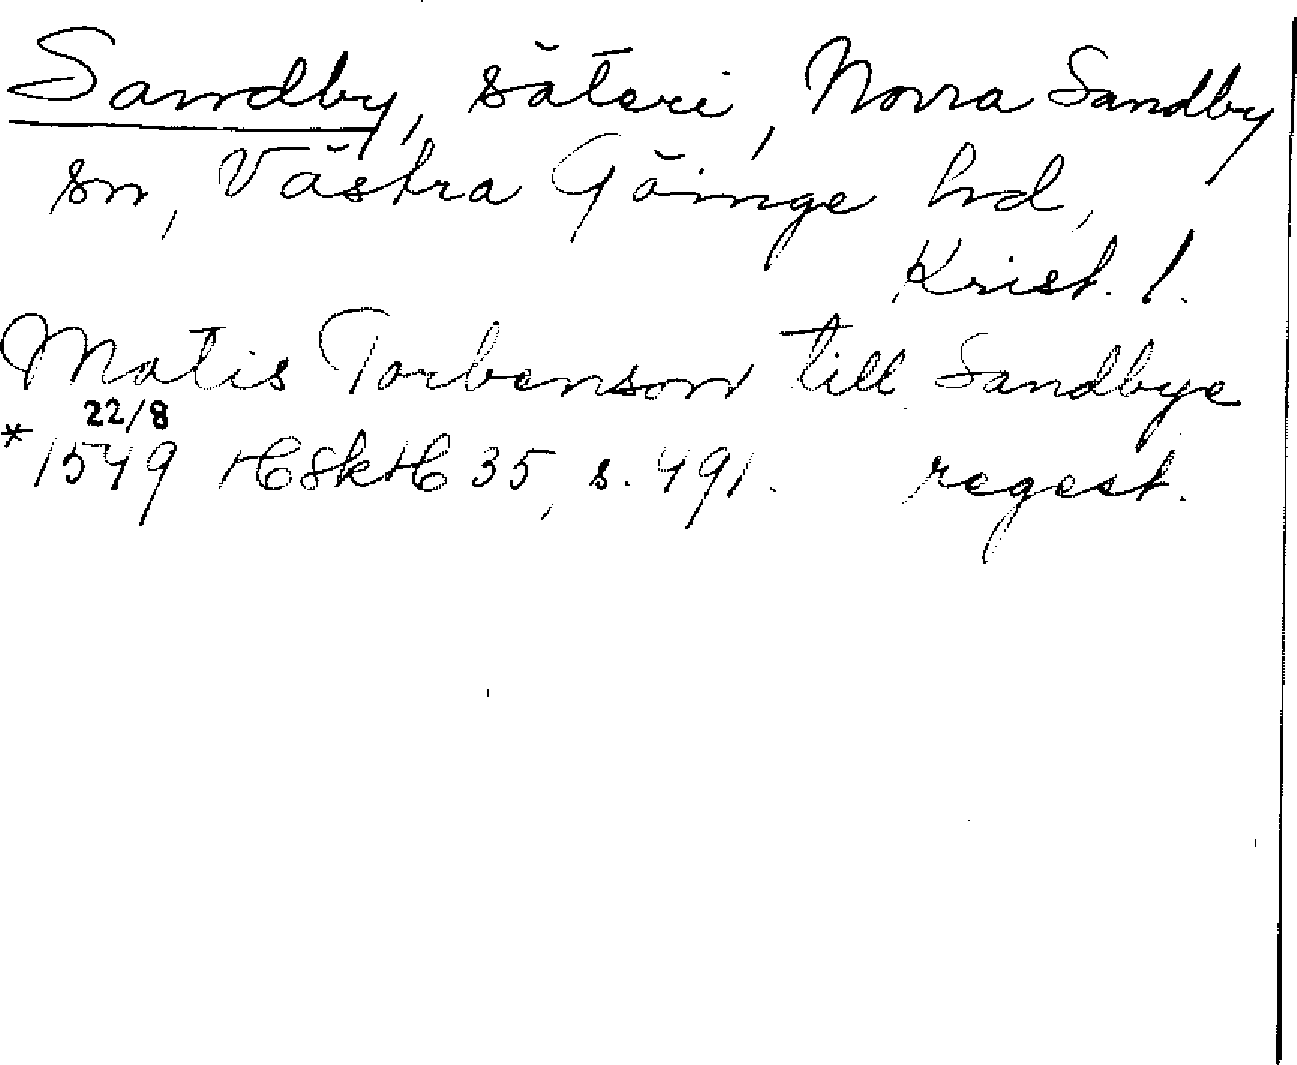 Sandby, säteri, Norra Sandby
sn, Västra Göinge hd,
Krist. l.
Matis Torbenson till Sandbye
22/8
*1549 HSkH 35, s. 491. regest.